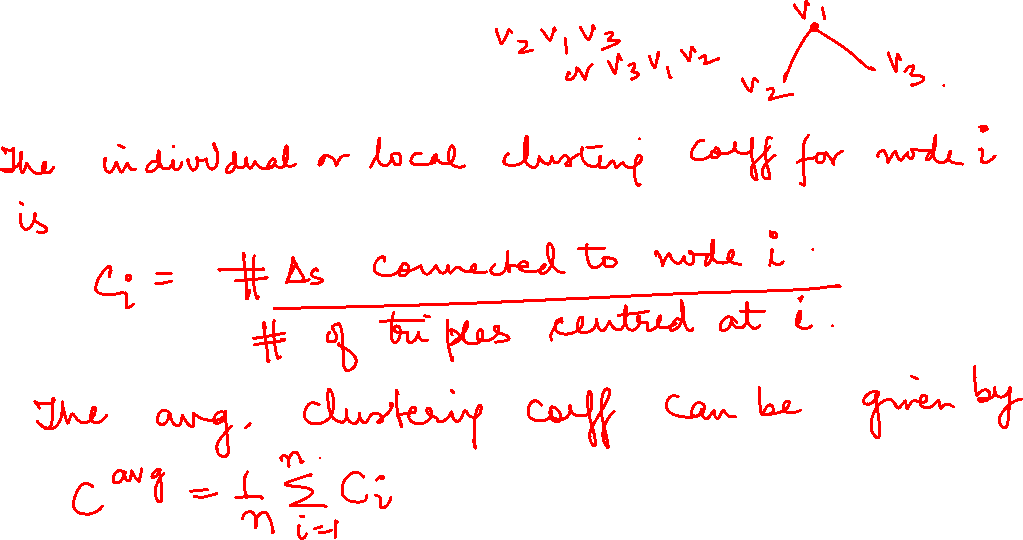 V₁
V₂ V₁ V₃
or V₃ V₁ V₂
V₂
V₃.
The individual or local clustering coeff for node i
is
Cᵢ = # Δs connected to node i.
# of triples centred at i.
The avg. clustering coeff can be given by
C^avg = 1/n Σ_{i=1}^{n} Cᵢ